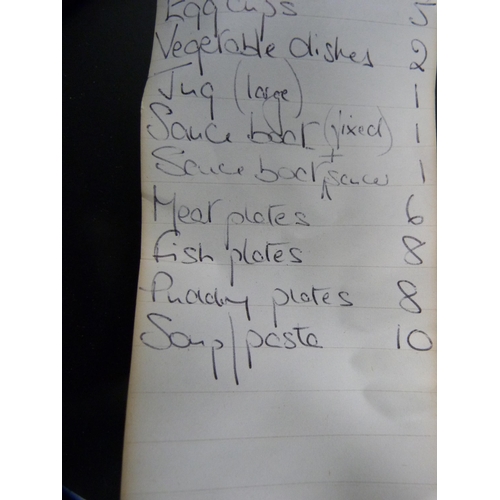 Egg cups 5
Vegetable dishes 2
Jug (large) 1
Sauce boat (fixed) 1
Sauce boat + saucer 1
Meat plates 6
Fish plates 8
Pudding plates 8
Soup/pasta 10